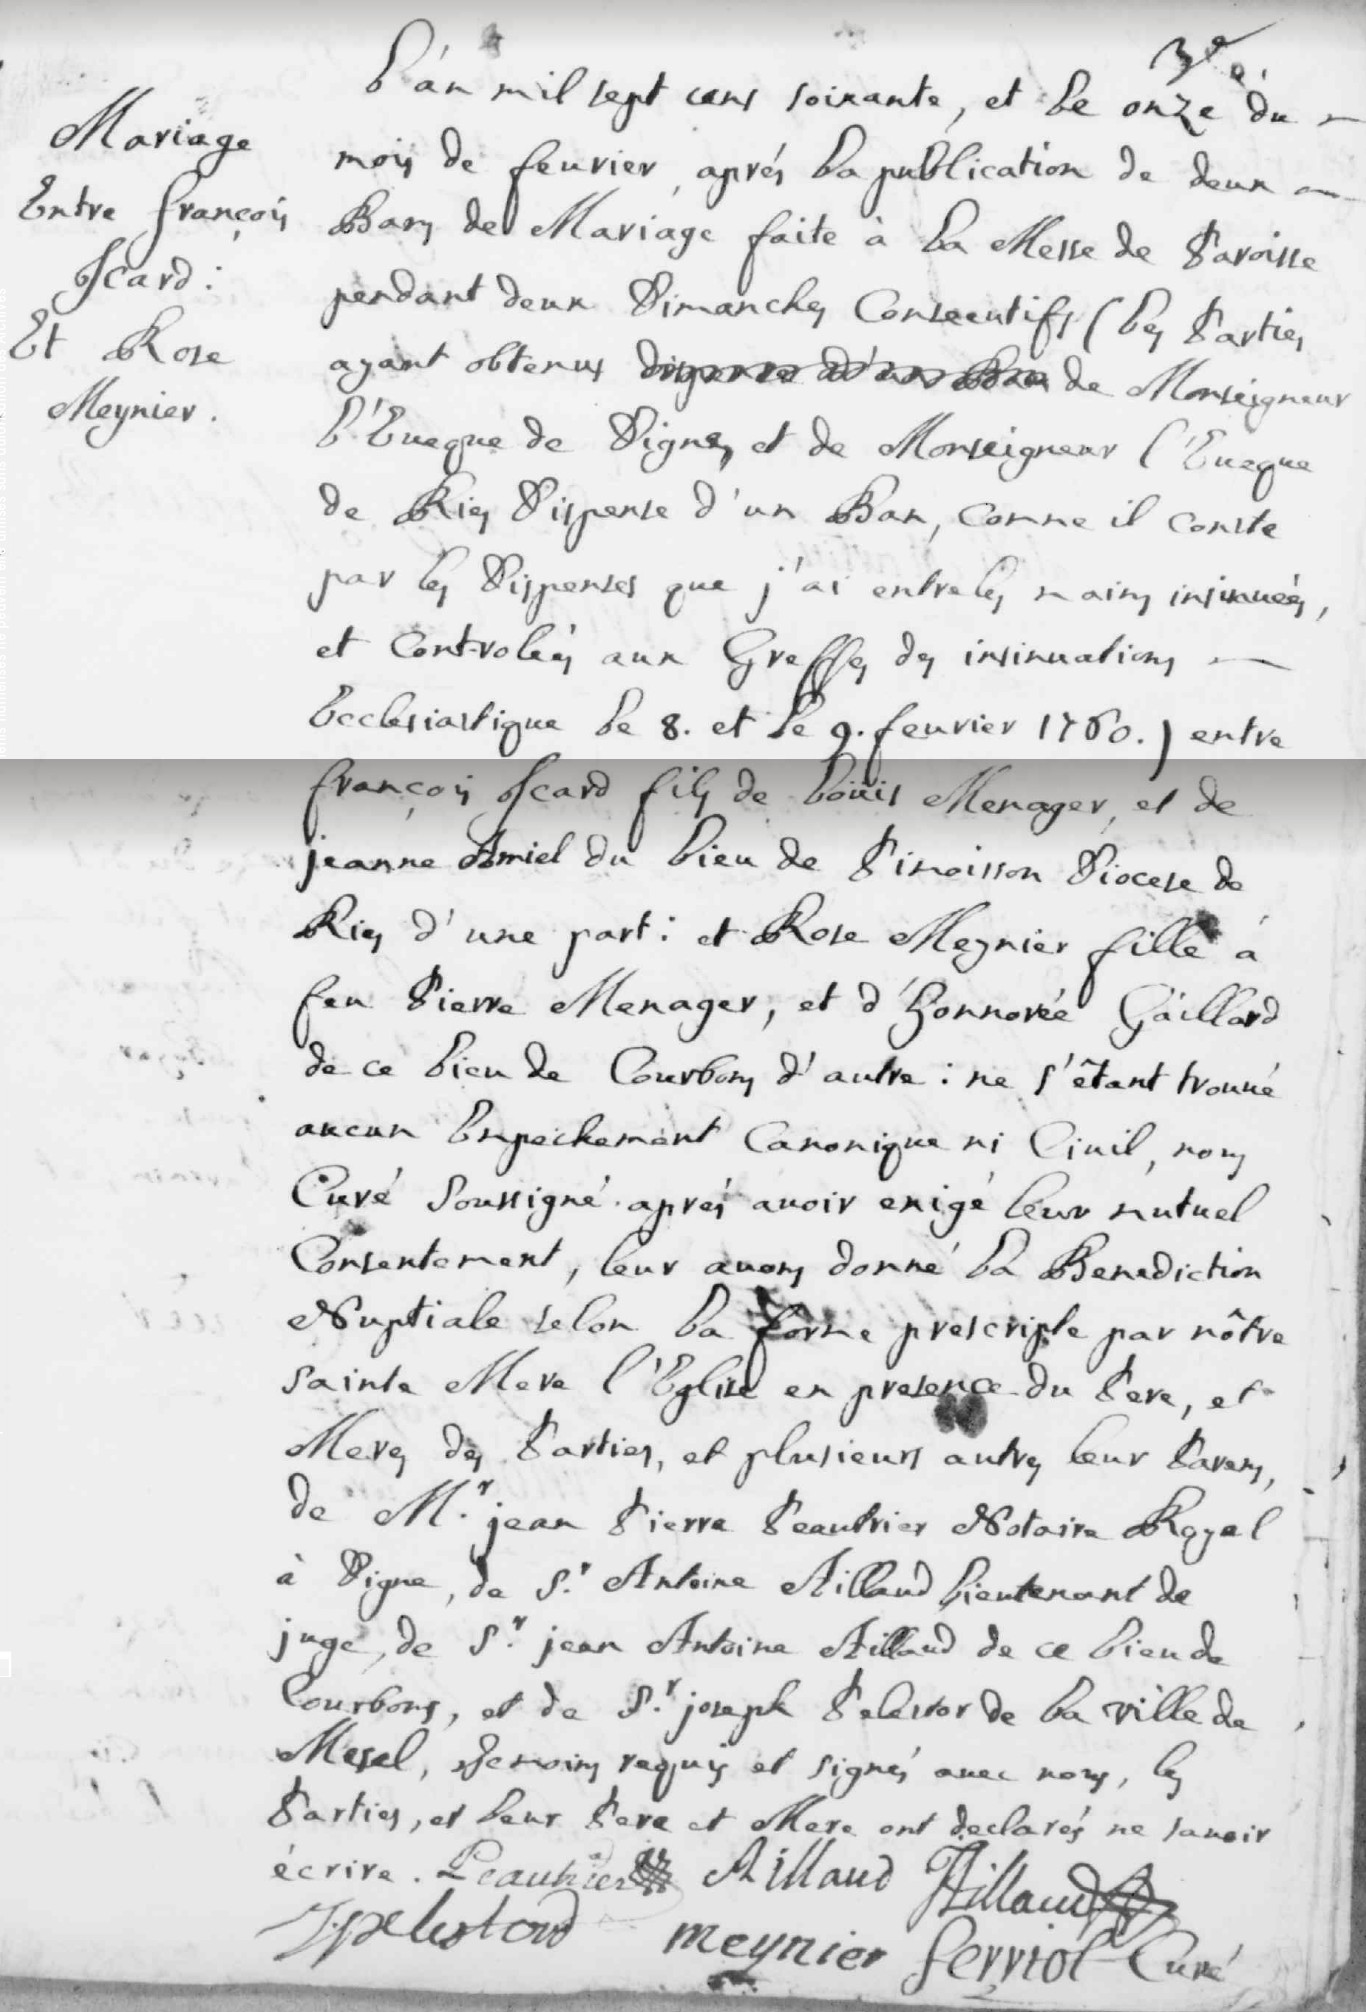 3e
L'an mil sept cens soixante, et Le onze du
mois de feuvrier, aprés La publication de deux
Bans de Mariage faite à La Messe de Paroisse
pendant deux Dimanches Consecutifs (Les Parties
ayant obtenus dispense d'un Ban de Monseigneur
L'Eueque de Digne, et de Monseigneur l'Eueque
de Ries Dispense d'un Ban, comme il conste
par les Dispenses que j'ai entre les mains insinuées,
et Controlées aux Greffes des insinuations
Ecclesiastique Le 8. et Le 9. feuvrier 1760.) entre
françois Icard fils de Loüis Menager, et de
jeanne Amiel du Lieu de Pimoisson Diocese de
Ries d'une part : et Rose Meynier fille à
feu Pierre Menager, et d'Honnorée Gaillard
de ce Lieu de Courbons d'autre : ne s'êtant trouué
aucun Empechement Canonique ni Ciuil, nous
Curé Soussigné aprés auoir exigé leur mutuel
Consentement, leur auons donné La Benediction
Nuptiale selon La forme prescripte par nôtre
sainte Mere l'Eglise en presence du Pere, et
Meres des Parties, et plusieurs autres leur Parens,
de M.r jean Pierre Peautrier Notaire Royal
à Digne, de S.r Antoine Aillaud Lieutenant de
juge, de S.r jean Antoine Aillaud de ce Lieu de
Courbons, et de S.r joseph Pelestor de La ville de
Mesel, Temoins requis et signés auec nous, les
Parties, et Leur Pere et Mere ont declarés ne sauoir
écrire. Peautrier Aillaud Aillaud
J. pelestord meynier ferriol Curé
Mariage
Entre françois
Icard :
Et Rose
Meynier.